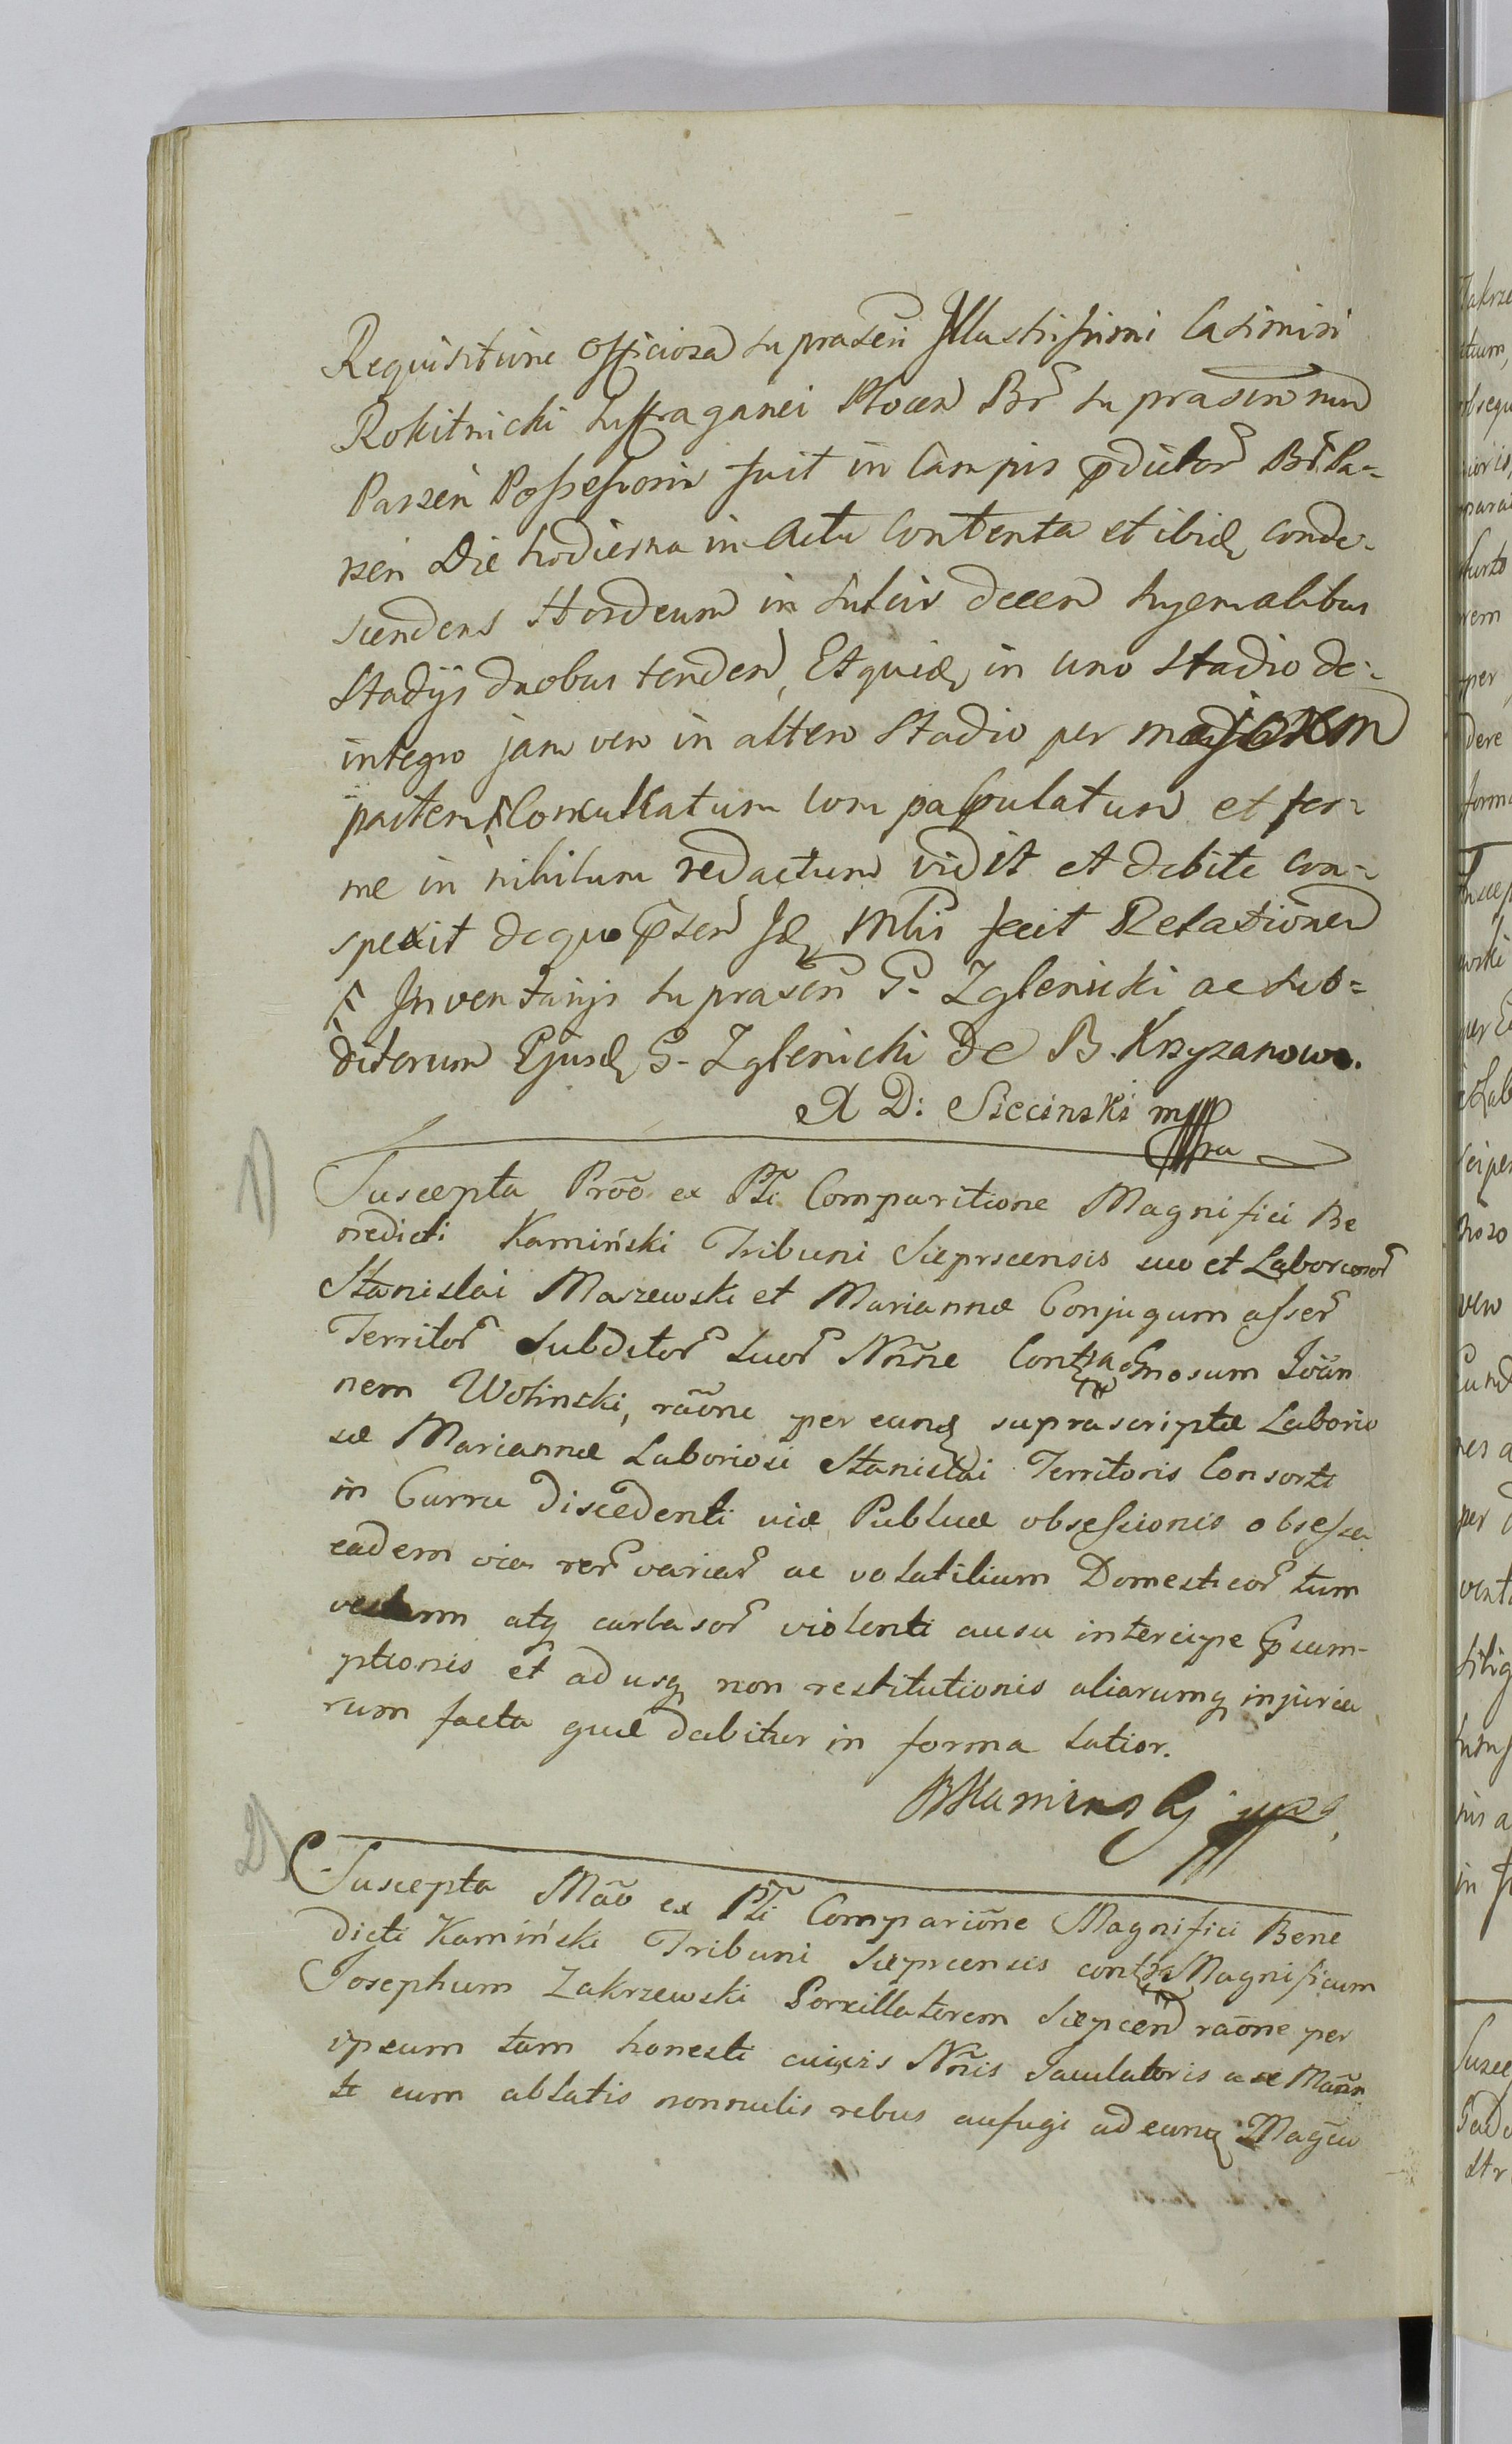 Requisitione officiosa suprascri Illustrissimi Casimiri
Rokitnicki Suffraganei Plocen Br̃ suprascrinum
Parzen Possessoris fuit in Campis p̃dictor̃ Br̃ Pa-
rzen Die hodierna in Actu Contenta et ibid, conde-
scendens Hordeum in sulcis decem hyemalibus
Stadijs duobus tenden, Et quid, in uno Stadio de
integro jam vero in altero Stadio per majorem
partem Conculcatum com pasculatum et fer-
me in nihilum redactum vidit et debite con-
spexit de quo p̃sen Id, Mtris fecit Relationem
Inventarijs suprascri G. Zglenicki ac sub=
ditorum Ejusd, G. Zglenicki de B. Krzyzanowo.
A D: Siecinski mppra
1)
Suscepta Prõõ ex Pti Comparitione Magnifici Be
nedicti Kamiński Tribuni Sieprscensis suo et Laboriosor̃
Stanislai Maszewski et Mariannæ Conjugum asser̃
Territor̃ Subditor̃ Suor̃ Nñne Contra Gnosum Joãn
nem Wolinski, rãõne per eund, suprascriptæ Laborio
sæ Mariannæ Laboriosi Stanislai Territoris Consorti
in Curru discedenti viæ Publicæ obsessionis obsessa
eadem via rer̃ variar̃ ac volatilium Domesticor̃ tum
vestium atq, carbasor̃ violenti ausu intercipe p̃sum-
ptionis et adusq, non restitutionis aliarumq, injuria
rum facta quæ dabitur in forma latior.
BKaminski mp
2)
Suscepta Mãõ ex Pti Compariõne Magnifici Bene
dicti Kamiński Tribuni Sieprcensis contra Magnificum
Josephum Zakrzewski Porxillatorem Siepcen rãõne per
ipsum tam honesti cujuvis Nr̃is Jaculatoris a se Mãnn
te cum ablatis nonnulis rebus aufugi ad eunq, Magco